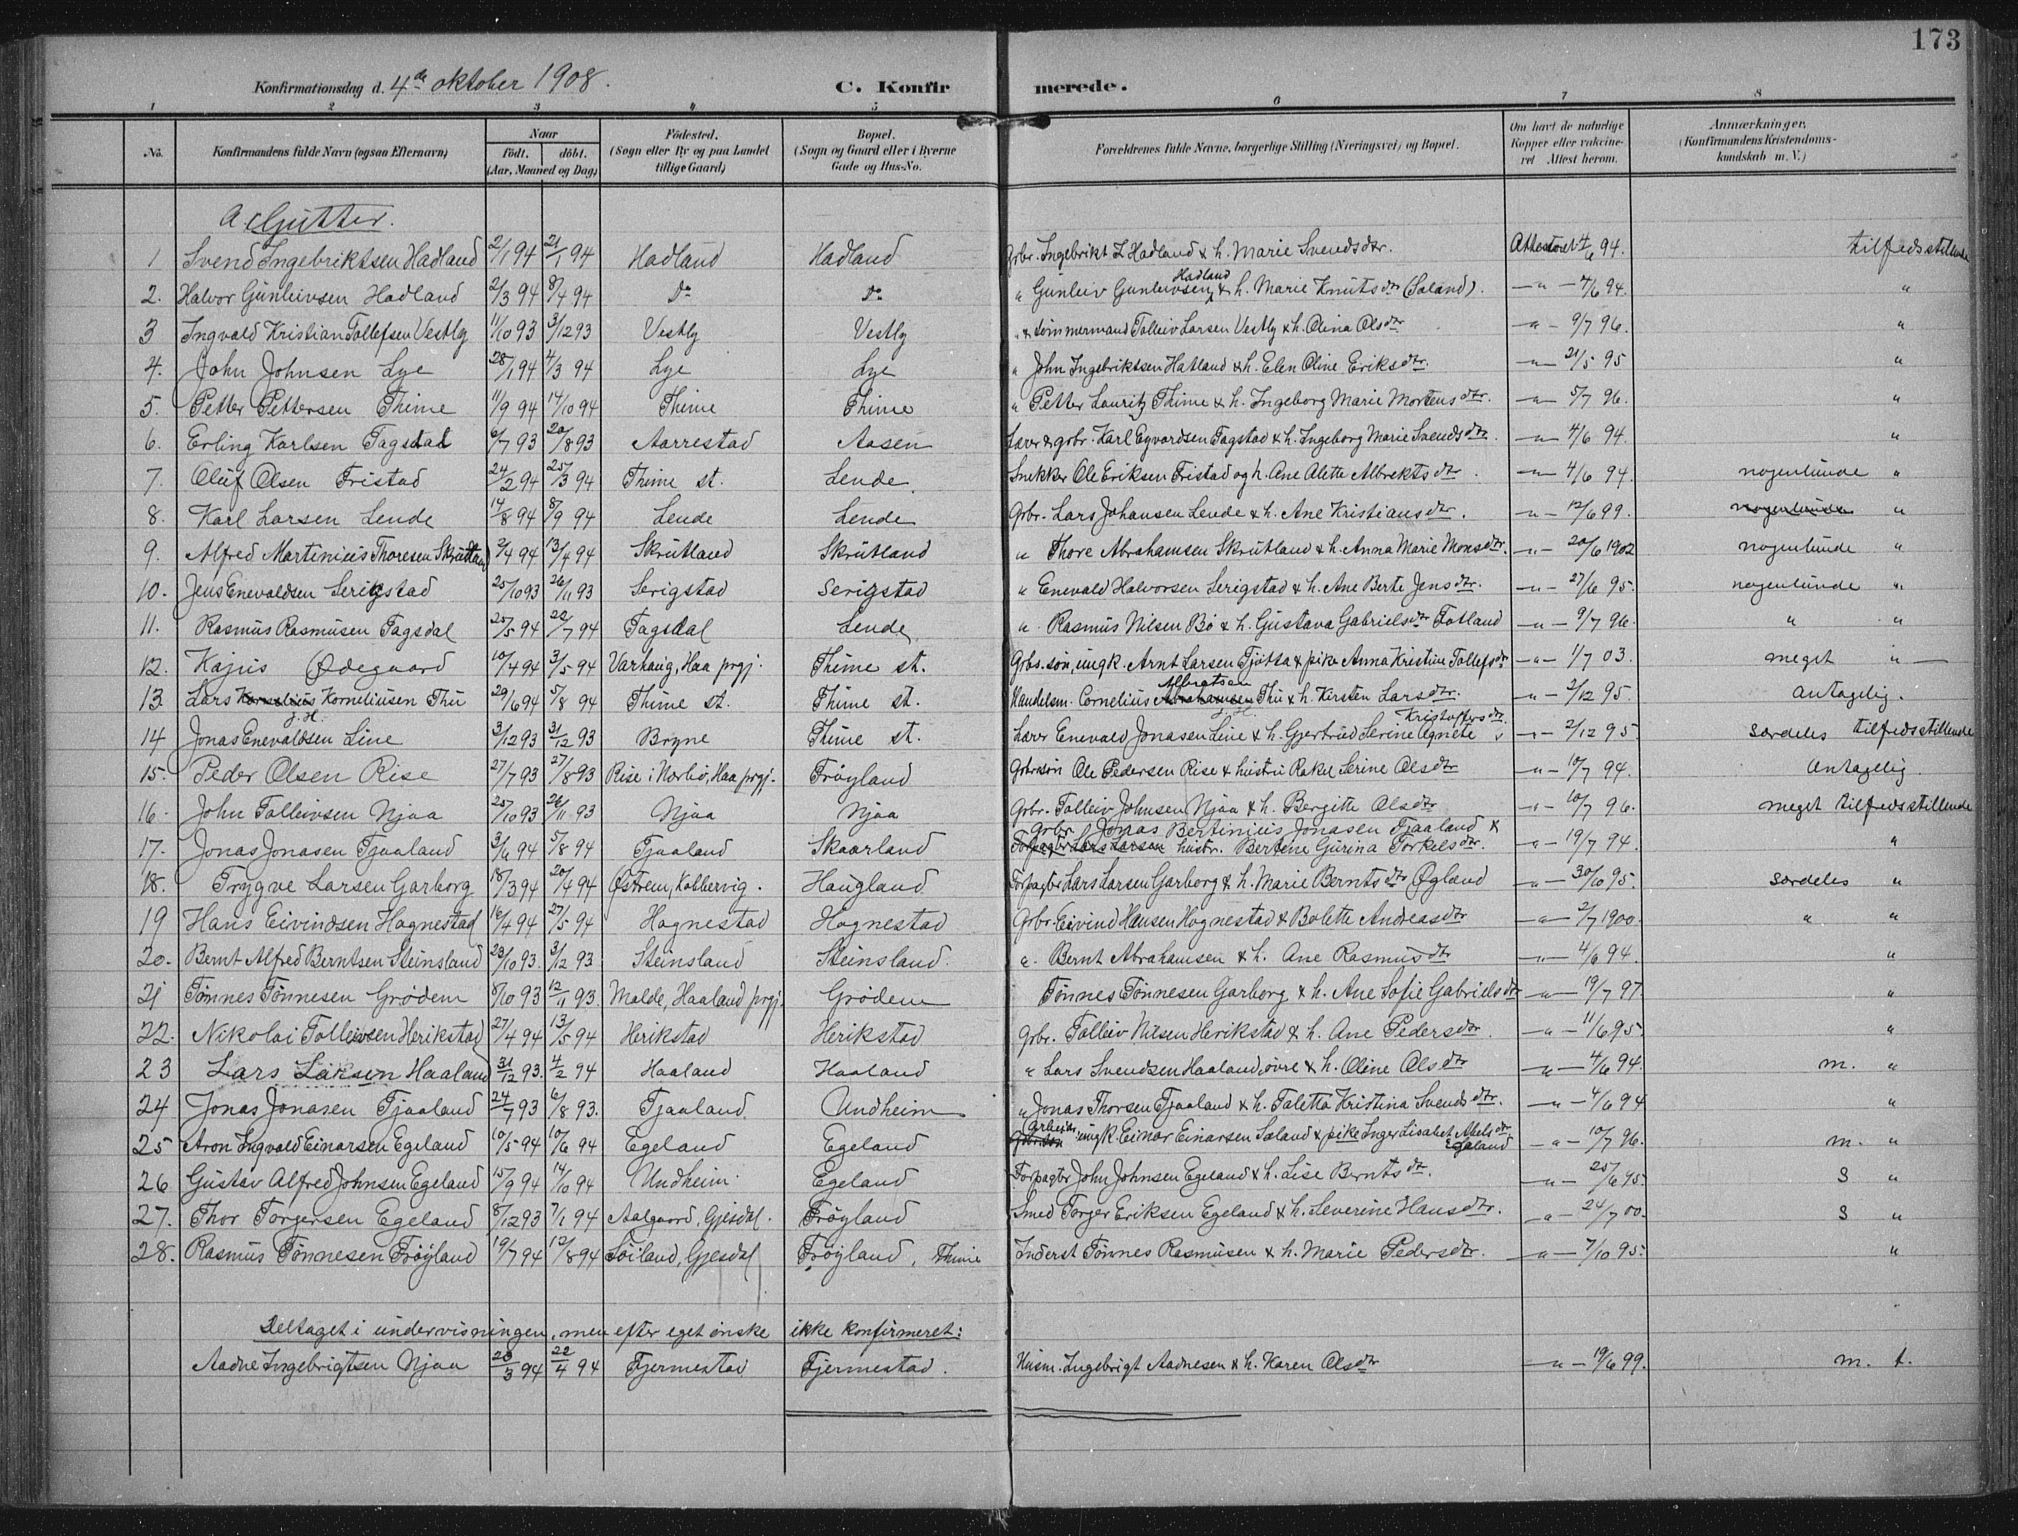 173
Konfirmationsdag d. 4de oktober 1908. C. Konfirmerede.
1 2 3 4 5 6 7 8
No. Konfirmandens fulde Navn (ogsaa Efternavn) Naar födt. döbt. (Aar, Maaned og Dag) Födested. (Sogn eller By og paa Landet tillige Gaard) Bopæl. (Sogn og Gaard eller i Byerne Gade og Hus-No. Forældrenes fulde Navne, borgerlige Stilling (Næringsvei) og Bopæl. Om havt de naturlige Kopper eller vakcineret Attest herom. Anmærkninger. (Konfirmandens Kristendomskundskab m. V.)
A. Gutter.
1 Svend Ingebriktsen Hadland 2/1 94 21/1 94 Hadland Hadland Grbr. Ingebrikt L Hadland & h. Marie Svendsdtr. 4/6 94. tilfredsstillende
2. Halvor Gunleivsen Hadland 2/3 94 8/4 94 Do Do " Gunleiv Gunleivsen Hadland & h. Marie Knutsdtr (Saland). -"- 4/6 94. "
3 Ingvald Kristian Tollefsen Vestly 11/10 93 3/12 93 Vestly Vestly " & tømmermand Tolleiv Larsen Vestly & h. Olina Olsdtr -"- 9/7 96. "
4. John Johnsen Lye 28/1 94 4/3 94 Lye Lye " John Ingebriktsen Hatland & h. Elen Oline Eriksdtr. -"- 21/5 95 "
5. Petter Pettersen Thime 11/9 94 14/10 94 Thime Thime " Petter Lauritz Thime & h. Ingeborg Marie Mortensdtr. -"- 5/7 96. "
6. Erling Karlsen Tagstad 6/7 93 20/8 93 Aarrestad Aasen Lærer & grbr. Karl Eyvardsen Tagstad & h. Ingeborg Marie Svendsdtr. -"- 4/6 94. "
7. Oluf Olsen Fristad 24/2 94 25/3 94 Thime st. Lende Snekker Ole Eriksen Fristad og h. Ane Alette Albrektsdtr. -"- 4/6 94 nogenlunde "
8. Karl Larsen Lende 14/8 94 8/9 94 Lende Lende Grbr. Lars Johansen Lende & h. Ane Kristiansdtr. -"- 12/6 99. nogenlunde "
9. Alfred Martinius Thoresen Skrudland 2/4 94 13/4 94 Skrutland Skrutland " Thore Abrahamsen Skrutland & h. Anna Marie Monsdtr. -"- 20/6 1902 nogenlunde "
10. Jens Enevaldsen Serigstad 25/10 93 26/11 93 Serigstad Serigstad " Enevald Halvorsen Serigstad & h. Ane Berte Jensdtr. -"- 27/6 95. nogenlunde "
11. Rasmus Rasmusen Tagsdal 25/5 94 22/7 94 Tagsdal Lende " Rasmus Nilsen Bø & h. Gustava Gabrielsdtr Fotland -"- 9/7 96. " "
12. Kajus Ødegaard 10/4 94 3/5 94 Varhaug, Haa prgj. Thime st. Grbs.søn, ungk. Arnt Larsen Tjøtta & pike Anna Kristine Tollefsdtr -"- 1/7 03. meget "
13. Lars Kornelius Korneliusen Thu 29/6 94 5/8 94 Thime st. Thime st. Handelsm. Cornelius Abrahamsen Albrigtsen Thu & h. Kirsten Larsdtr. -"- 2/12 95. antagelig.
14 Jonas Enevaldsen Line 3/12 93 31/12 93 Bryne Thime st. Lærer Enevald Jonasen Line & h. Gjertrud Serine Agnete Kristoffersdtr. -"- 2/12 95 særdeles tilfredsstillende
15. Peder Olsen Rise 27/7 93 27/8 93 Rise i Nærbø, Haa prgj. Frøyland Gbrsøn Ole Pedersen Rise & hustru Rakel Serine Olsdtr -"- 10/7 94. antagelig.
16. John Tolleivsen Njaa 25/10 93 26/11 93 Njaa Njaa Grbr. Tolleiv Johnsen Njaa & h. Bergitte Olsdtr -"- 10/7 96. meget tilfredsstillende
17. Jonas Jonasen Tjaaland 3/6 94 5/8 94 Tjaaland Skaarland grbr. Jonas Bertinius Jonasen Tjaaland & Forpagter Lars Larsen hustr. Bertene Gurina Torkelsdtr. -"- 19/7 94. "
18. Trygve Larsen Garborg 18/3 94 20/4 94 Østrem, Kobbervig. Haugland Forpagter Lars Larsen Garborg & h. Marie Berntsdtr Øgland -"- 30/10 95. særdeles "
19 Hans Eivindsen Hognestad 16/4 94 27/5 94 Hognestad Hognestad Grbr. Eivind Hansen Hognestad & Bolette Andreasdtr -"- 2/7 1900. " "
20. Bernt Alfred Berntsen Steinsland 23/10 93. 3/12 93 Steinsland Steinsland. " Bernt Abrahamsen & h. Ane Rasmusdtr -"- 4/6 94. "
21 Tønnes Tønnesen Grødem 8/10 93 12/11 93. Malde, Haaland prgj. Grødem Tønnes Tønnesen Garborg & h. Ane Sofie Gabrielsdtr -"- 19/7 97. "
22. Nikolai Tolleivsen Herikstad 27/4 94 13/5 94 Herikstad Herikstad grbr. Tolleiv Nilsen Herikstad & h. Ane Pedersdtr. -"- 11/6 95. "
23 Lars Larsen Haaland 31/12 93. 4/2 94 Haaland Haaland " Lars Svendsen Haaland, øvre & h. Oline Olsdtr -"- 4/6 94. m. "
24 Jonas Jonasen Tjaaland 24/7 93 6/8 93. Tjaaland Undheim " Jonas Thorsen Tjaaland & h. Taletta Kristina Svendsdtr. -"- 4/6 94 "
25 Aron Ingvald Einarsen Egeland 10/5 94 10/6 94 Egeland Egeland Gbrsøn Arbeider, ungk. Einar Einarsen Saland & pike Inger Lisabet Abelsdtr Egeland -"- 10/7 96. m. "
26 Gustav Alfred Johnsen Egeland 15/9 94 14/10 94 Undheim. Egeland Forpagter John Johnsen Egeland & h. Lise Berntsdtr. -"- 25/6 95. S "
27. Thor Torgersen Egeland 8/12 93 7/1 94 Aalgaard, Gjesdal. Frøyland Smed Torger Eriksen Egeland & h. Severine Hansdtr. -"- 24/7 00. S "
28. Rasmus Tønnesen Frøyland 19/7 94 12/8 94 Søiland, Gjesdal Frøyland, Thime Inderst Tønnes Rasmusen & h. Marie Pedersdtr. -"- 7/10 95. "
Deltaget i undervisningen, men efter eget ønske ikke konfirmeret:
Aadne Ingebrigtsen Njaa 23/3 94 22/4 94 Tjermestad Tjermestad. Husm. Ingebrigt Aadnesen & h. Karen Olsdtr -"- 19/6 99. m. t.